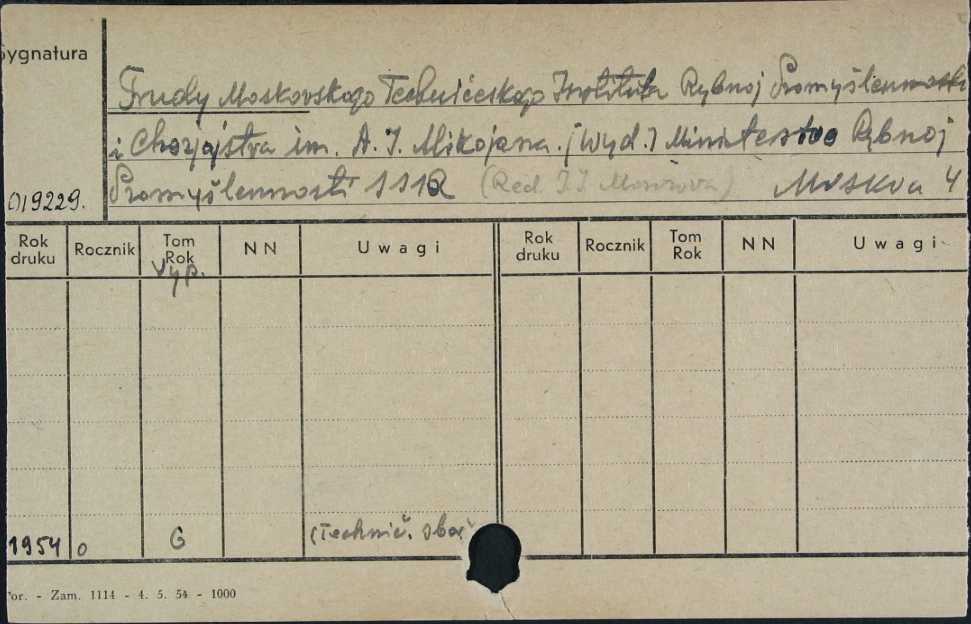 Sygnatura
Trudy Moskovskogo Techničeskogo Instituta Rybnoj Promyšlennosti
i Chozjajstva im. A. I. Mikojana. (Wyd.) Ministerstvo Rybnoj
Promyšlennosti SSSR (Red. I. I. ) Moskva
019229.
Rok druku Rocznik Tom Rok NN Uwagi Rok druku Rocznik Tom Rok NN Uwagi
Vyp.
1954 0 6 (Technič. sbor.
or. - Zam. 1114 - 4. 5. 54 - 1000